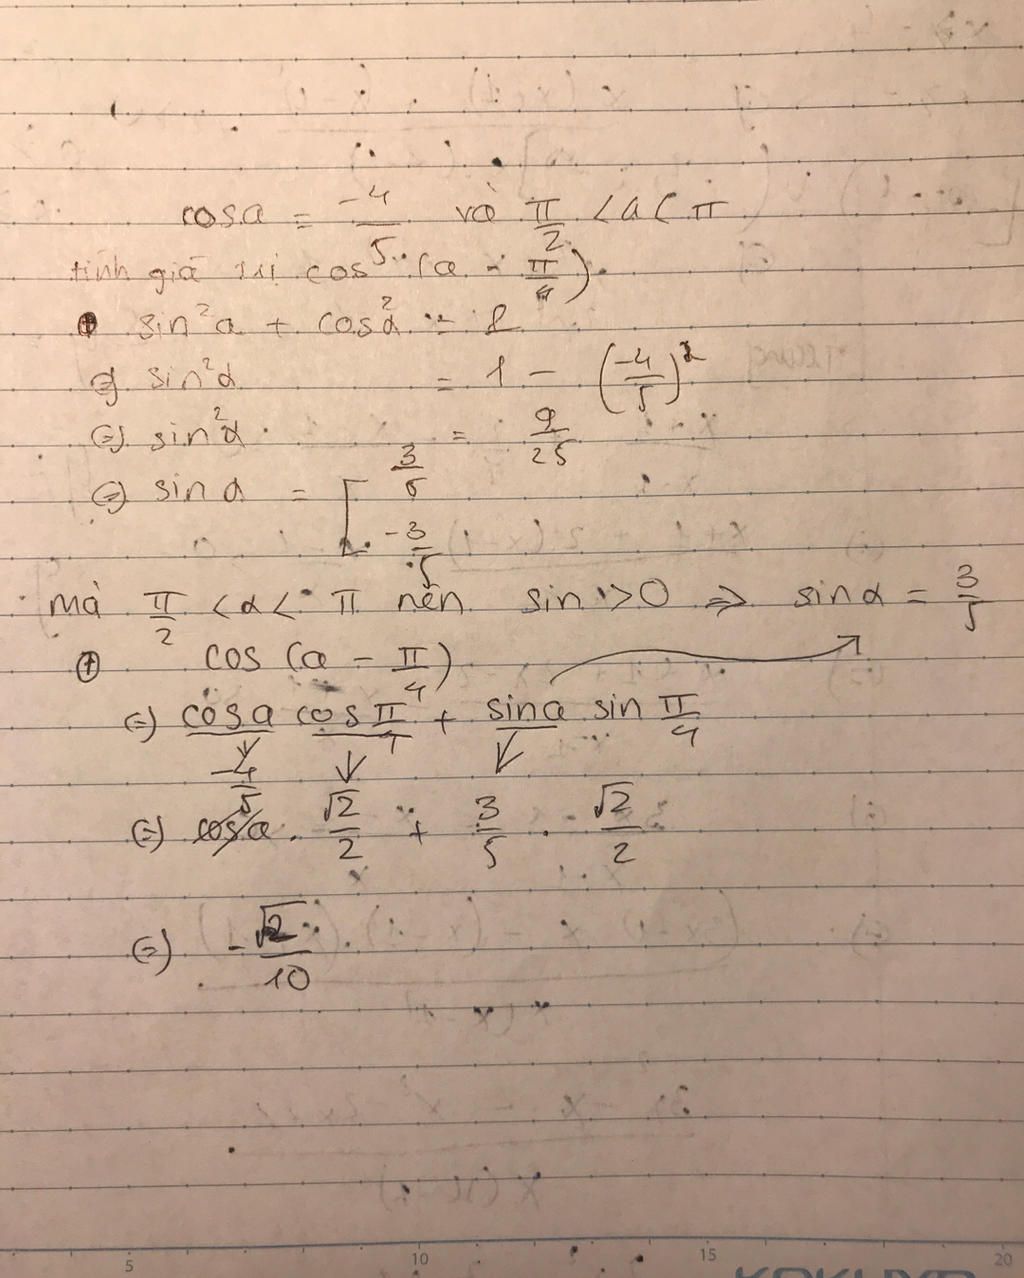 cosa = -4/5 và π/2 < a < π
tính giá trị cos (a - π/4)
⊕ sin²a + cos²α = 1
⇔ sin²α = 1 - (-4/5)²
⇔ sin²α = 9/25
⇔ sin α = [ 3/5
-3/5
mà π/2 < α < π nên sin > 0 ⇒ sin α = 3/5
⊕ cos (a - π/4)
⇔ cosa cos π/4 + sina sin π/4
-4/5
⇔ cosa . √2/2 + 3/5 . √2/2
⇔ -√2/10
5 10 15 20
KOKUYO